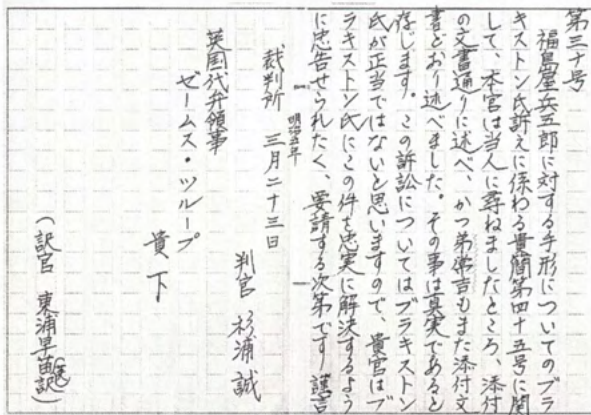 第三十号
福島屋兵五郎に対する手形についてのブラ
キストン氏訴えに係わる書簡第四十五号に関
して、本官は当人に尋ねましたところ、添付
の文書通りに述べ、かつ弟常吉もまた添付文
書どおり述べました。その事は真実であると
存じます。この訴訟についてはブラキストン
氏が正当ではないと思いますので、貴官はブ
ラキストン氏にこの件を忠実に解決するよう
に忠告せられたく、要請する次第です。謹言
明治五年
裁判所 三月二十三日
判官 杉浦 誠
英国代弁領事
ゼームス・ツループ
貴下
(訳官 東浦早苗訳)